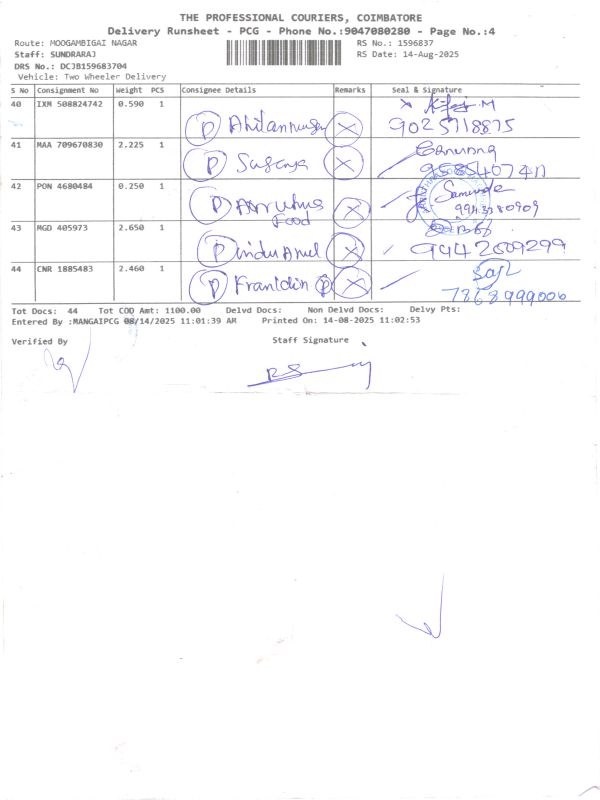 THE PROFESSIONAL COURIERS, COIMBATORE
Delivery Runsheet - PCG - Phone No.:9047080280 - Page No.:4
Route: MOOGAMBIGAI NAGAR RS No.: 1596837
Staff: SUNDRARAJ RS Date: 14-Aug-2025
DRS No.: DCJB159683704
Vehicle: Two Wheeler Delivery
S No Consignment No Weight PCS Consignee Details Remarks Seal & Signature
40 IXM 508824742 0.590 1
P X 9025718875
41 MAA 709670830 2.225 1
P Suganya X
42 PON 4680484 0.250 1
P Food X 9943380909
43 MGD 405973 2.650 1
P X 9442609299
44 CNR 1885483 2.460 1
P X 7868999006
Tot Docs: 44 Tot COD Amt: 1100.00 Delvd Docs: Non Delvd Docs: Delvy Pts:
Entered By :MANGAIPCG 08/14/2025 11:01:39 AM Printed On: 14-08-2025 11:02:53
Verified By Staff Signature